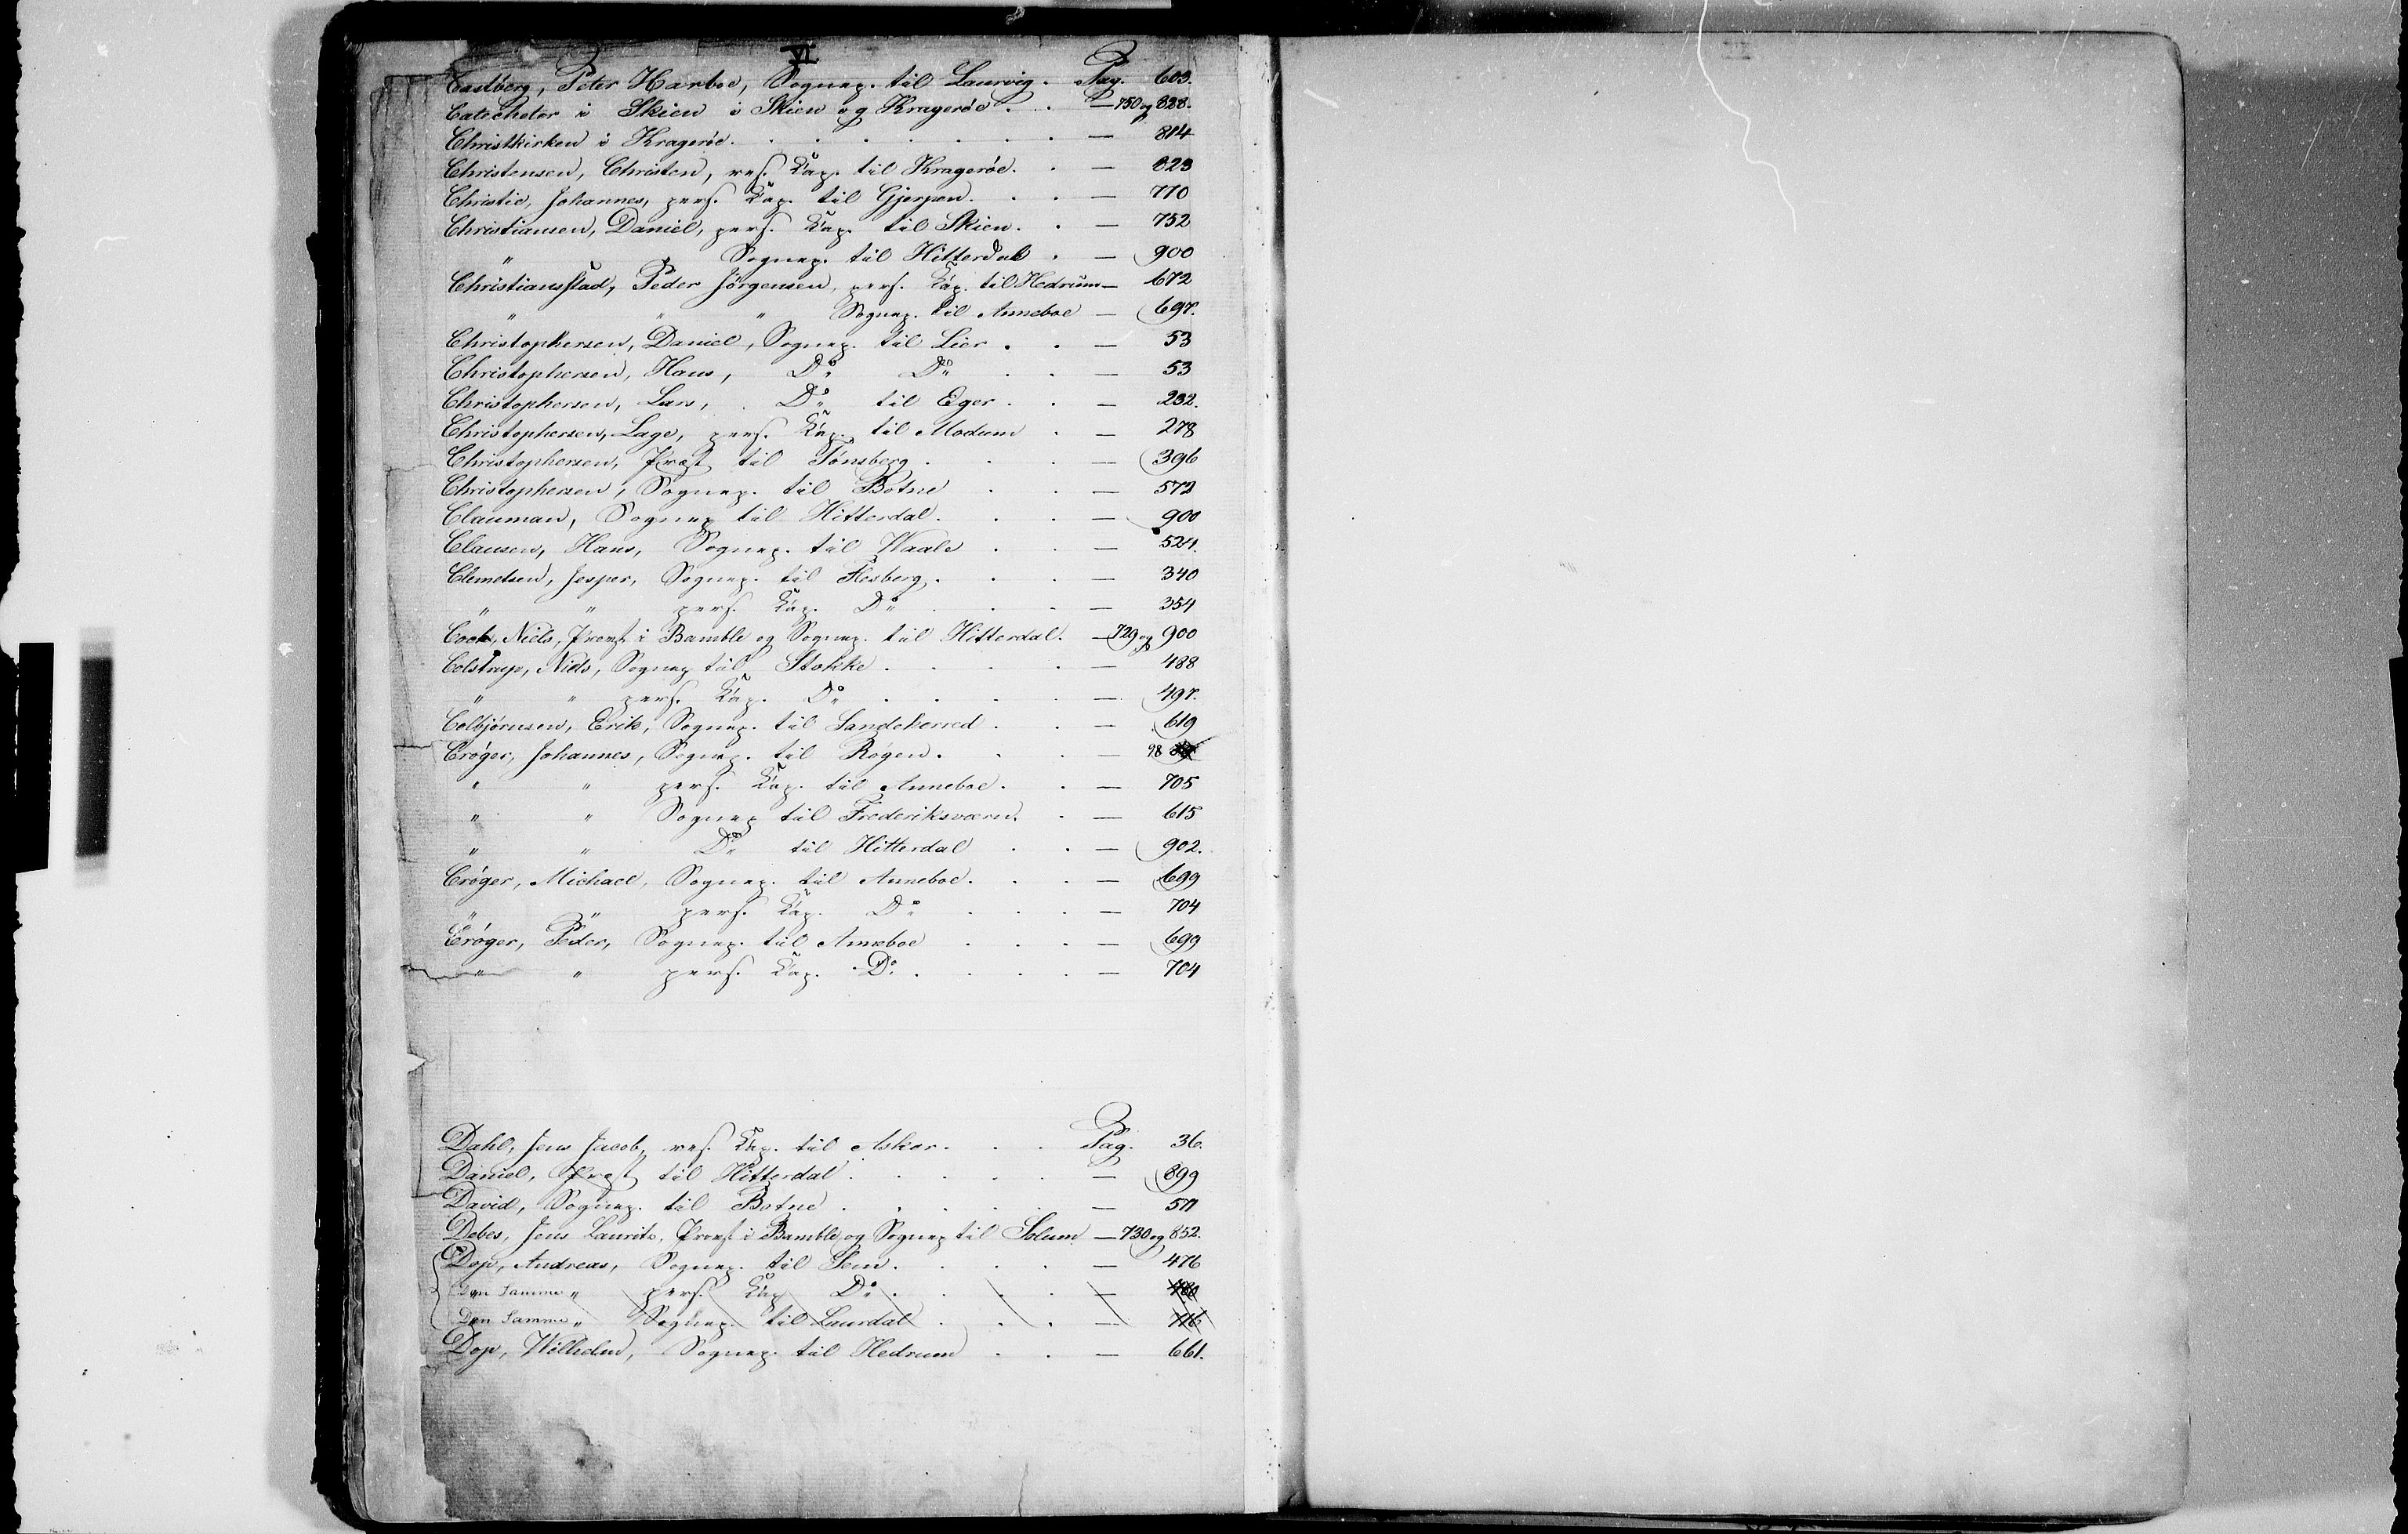 VI
Castberg, Peter Harboe, Sognep. til Laurvig. Pag. 603.
Catecheter i Skien i Skien og Kragerøe . . — 750 og 828.
Christkirken i Kragerøe. . . . . . . — 814
Christensen, Christen, res. Kap. til Kragerøe. . — 823
Christie, Johannes, pers. Kap. til Gjerpen. . . — 770
Christiansen, Daniel, pers. Kap. til Skien. . — 752
" " Sognep. til Hitterdal . — 900
Christiansstad, Peder Jörgensen, pers. Kap. til Hedrum — 672
" " " Sognep. til Anneboe — 697.
Christophersen, Daniel, Sognep. til Lier . . — 53
Christophersen, Hans, Do. Do. . . — 53
Christophersen, Lars, Do. til Eger . . — 232.
Christophersen, Lage, pers. Kap. til Modum . — 278
Christophersen, Præst til Tönsberg . . . — 396
Christophersen, Sognep. til Botne . . — 572
Clauman, Sognep til Hitterdal. . . — 900
Clausen, Hans, Sognep. til Waale . . — 524.
Clemetsen, Jesper, Sognep. til Flesberg. . . — 340
" " pers. Kap. Do. . . . — 354
Cook, Niels, Provst i Bamble og Sognep. til Hitterdal. — 729 og 900
Colstrup, Niels, Sognep til Stokke . . . . — 488
" " pers. Kap. Do. . . . . — 497.
Colbjörnsen, Erik, Sognep. til Sandeherred . . — 619
Cröger, Johannes, Sognep. til Rögen. . . — 98
" " pers. Kap. til Anneboe. . — 705
" " Sognep til Frederiksværn. . — 615
" " Do. til Hitterdal . . — 902.
Cröger, Michael, Sognep. til Anneboe. . . — 699
" " pers. Kap. Do. . . . — 704
Cröger, Peder, Sognep. til Anneboe . . . — 699
" " pers. Kap. Do. . . . . — 704
Dahl, Jens Jacob, res. Kap. til Asker. . . Pag. 36.
Daniel, Præst til Hitterdal . . . . . — 899
David, Sognep. til Botne . . . . . — 571
Debes, Jens Laurits, Provst i Bamble og Sognep til Solum — 730 og 852.
Dop, Andreas, Sognep. til Sem. . . . . — 476
Den Samme " pers. Kap Do. . . . . — 480
Den Samme " Sognep. til Laurdal . . . — 716
Dop, Wilhelm, Sognep. til Hedrum . . — 661.